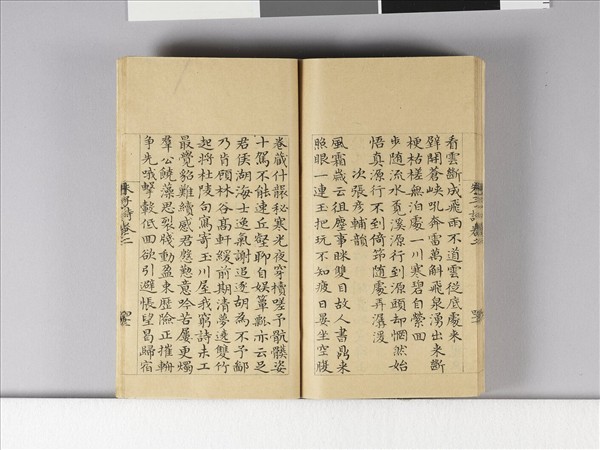 看雲斷成飛雨不道雲從底處來
辟開蒼峽吼奔雷萬斛飛泉湧出來斷
梗枯槎無泊處一川寒碧自縈回
步隨流水覓溪源行到源頭却惘然始
悟真源行不到倚笻隨處弄潺湲
次張彥輔韻
風霜歲云徂塵事眯雙目故人書鼎來
照眼一連玉把玩不知疲日晏坐空腹
卷藏什襲秘寒光夜穿櫝嗟予骯髒姿
十駕不能速丘壑聊自娛簞瓢亦云足
君侯湖海士逸氣謝追逐胡為不予鄙
乃肯顧林谷高軒緩前期清夢遶雙竹
起將杜陵句寫寄玉川屋我窮詩未工
最覺貂難續感君慇懃意吟苦屢更燭
羣公饒藻思裂牋動盈束歷險正摧輈
爭先哦擊轂低回欲引避悵望曷歸宿
詩卷二